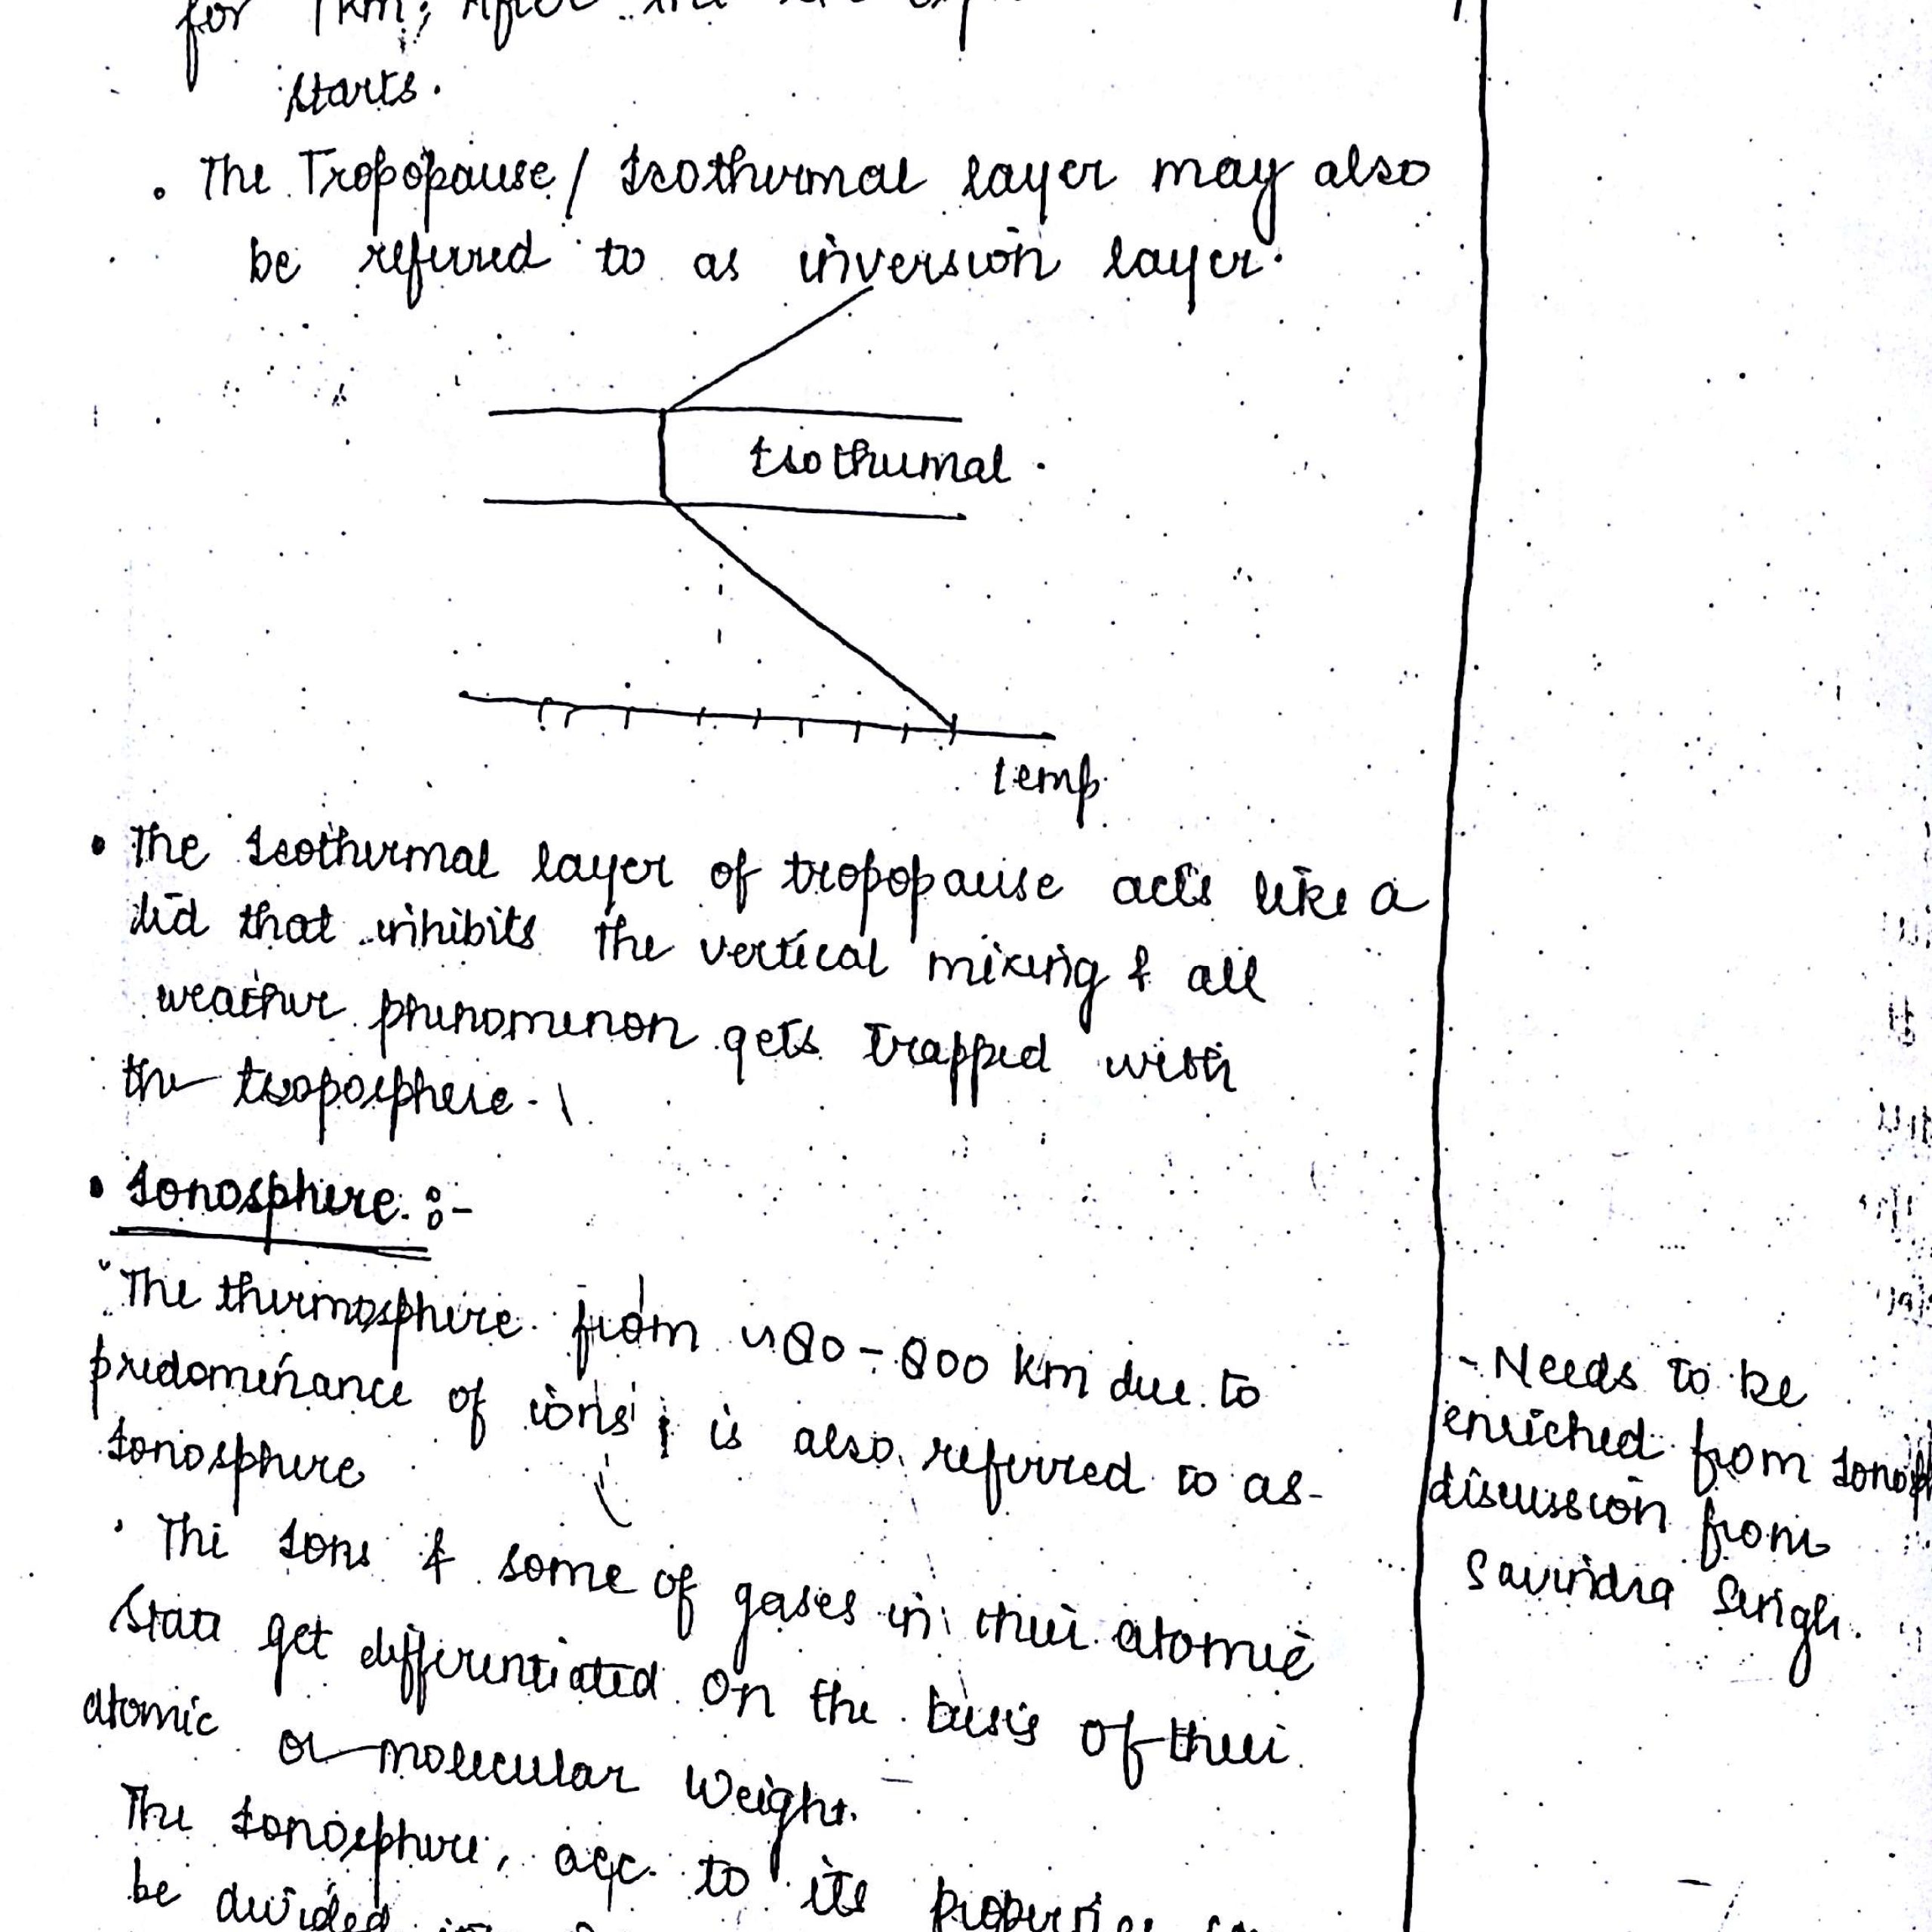 for 1km; After
starts.
• The Tropopause / Isothermal layer may also
be referred to as inversion layer.
Isothermal.
temp.
• The Isothermal layer of tropopause acts like a
lid that inhibits the vertical mixing & all
weather phenomenon gets trapped with
the troposphere.
• Ionosphere :-
The thermosphere from ~80-800 km due to
predominance of ions; is also referred to as-
Ionosphere
• The Ions & some of gases in their atomic
state get differentiated on the basis of their
atomic or molecular weight.
The Ionosphere, acc. to its properties can
be divided
- Needs to be
enriched from
discussion from
Savindra Singh.